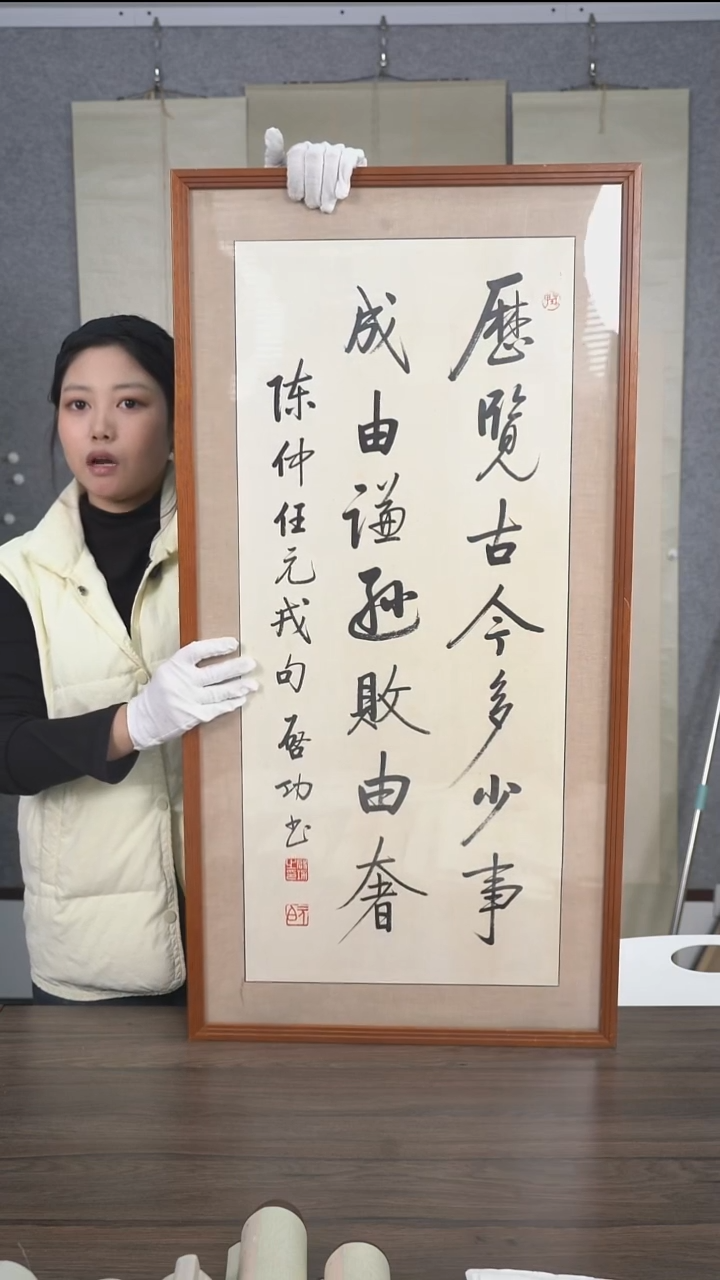 歷覽古今多少事
成由謙遜敗由奢
陈仲任元戎句 启功书